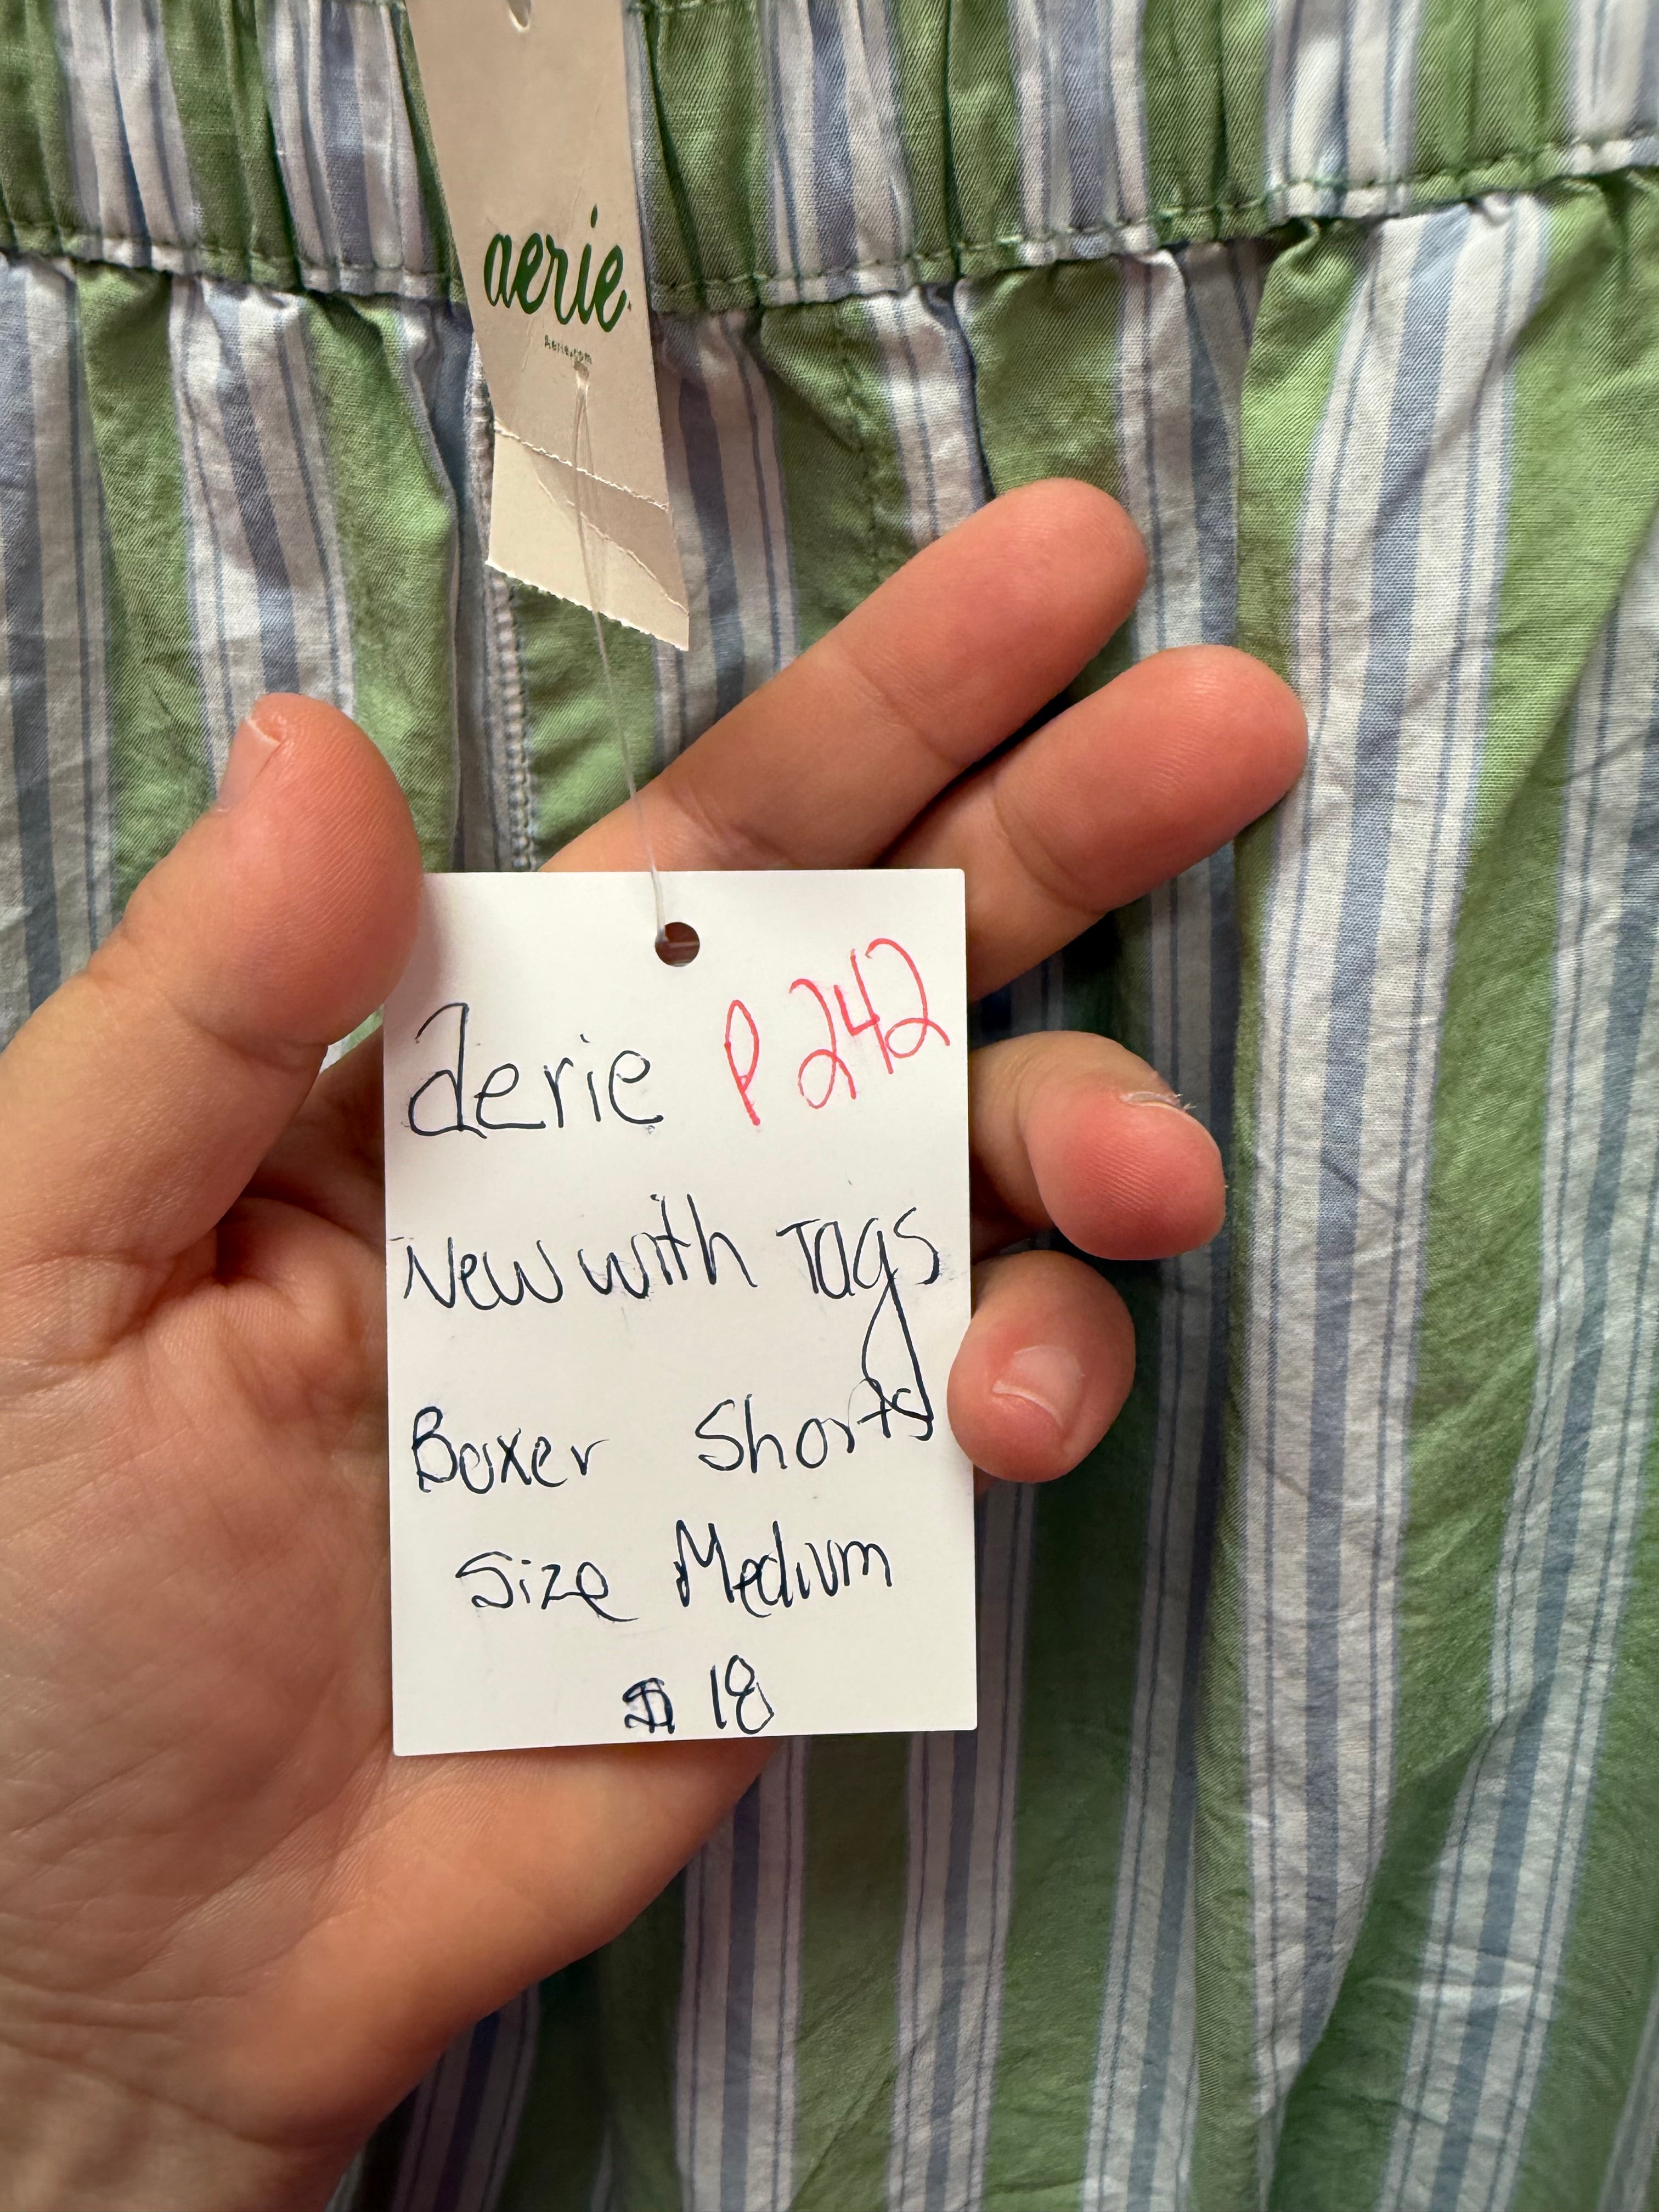 aerie
Aerie.com
aerie P242
New with Tags
Boxer Shorts
Size Medium
$18